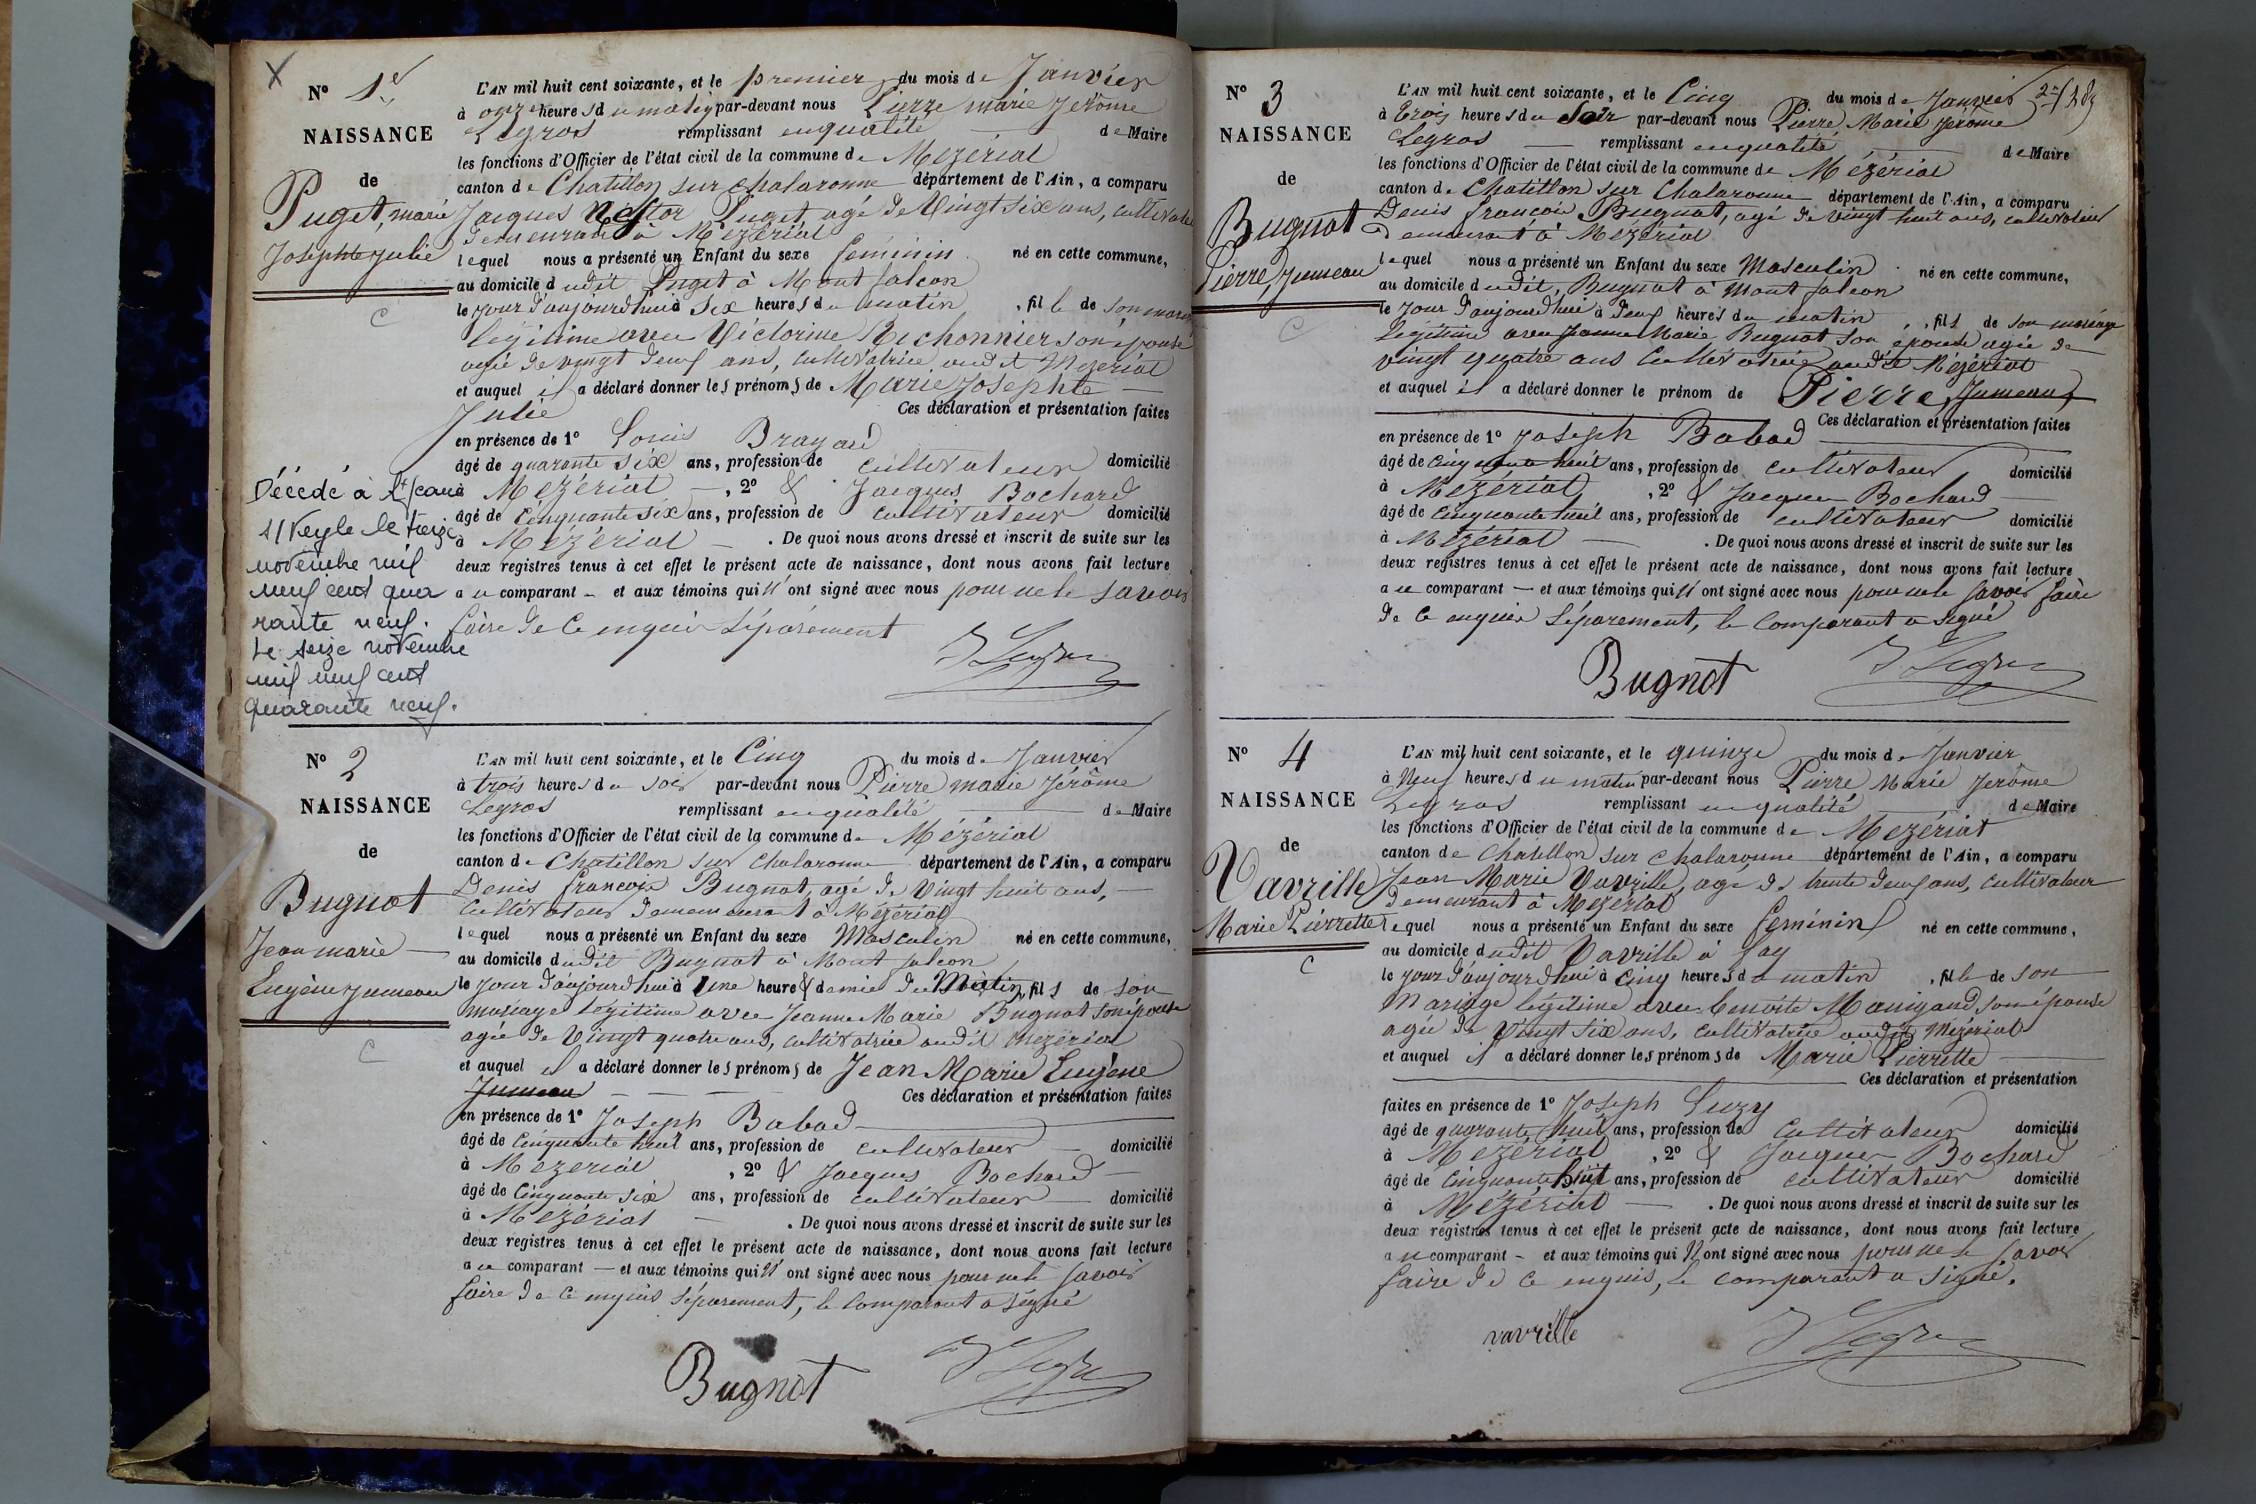 X
N° 1er
NAISSANCE
de
Puget, marie
Josephte Julie
C
L'AN mil huit cent soixante, et le premier du mois de Janvier
à onze heures du matin par-devant nous Pierre marie Jerôme
Legros remplissant en qualité de Maire
les fonctions d'Officier de l'état civil de la commune de Mézériat
canton de Chatillon sur chalaronne département de l'Ain, a comparu
Jacques Nestor Puget, agé de Vingt six ans, cultivateur
demeurant à Mézériat
lequel nous a présenté un Enfant du sexe féminin né en cette commune,
au domicile dudit Puget à Mont falcon
le jour d'aujourd'hui à six heures du matin, fille de son mariage
légitime avec Victorine Bichonnier son épouse
agée de vingt deux ans, cultivatrice audit Mézériat
et auquel il a déclaré donner les prénoms de Marie Josephte
Julie Ces déclaration et présentation faites
en présence de 1° Louis Brayard
âgé de quarante six ans, profession de cultivateur domicilié
à Mézériat, 2° & Jacques Bochard
âgé de cinquante six ans, profession de cultivateur domicilié
à Mézériat. De quoi nous avons dressé et inscrit de suite sur les
deux registres tenus à cet effet le présent acte de naissance, dont nous avons fait lecture
au comparant — et aux témoins qui n'ont signé avec nous pour ne le savoir
faire de ce enquis séparément
Décédé à St Jean
s/ Veyle le treize
novembre mil
neuf cent qua
rante neuf.
Le seize novembre
mil neuf cent
quarante neuf.
N° 2
NAISSANCE
de
Bugnot
Jean marie
Eugène jumeau
C
L'AN mil huit cent soixante, et le Cinq du mois de Janvier
à trois heures du soir par-devant nous Pierre marie Jérôme
Legros remplissant en qualité de Maire
les fonctions d'Officier de l'état civil de la commune de Mézériat
canton de Chatillon sur Chalaronne département de l'Ain, a comparu
Denis françois Bugnot, agé de Vingt huit ans,
cultivateur demeurant à Mézériat
lequel nous a présenté un Enfant du sexe Masculin né en cette commune,
au domicile dudit Bugnot à Mont falcon
le jour d'aujourd'hui à Une heure & demie du Matin, fils de son
mariage légitime avec Jeanne Marie Bugnot son épouse
agée de Vingt quatre ans, cultivatrice audit Mézériat
et auquel il a déclaré donner les prénoms de Jean Marie Eugène
Jumeau Ces déclaration et présentation faites
en présence de 1° Joseph Babad
âgé de Cinquante huit ans, profession de cultivateur domicilié
à Mézériat, 2° & Jacques Bochard
âgé de Cinquante six ans, profession de cultivateur domicilié
à Mézériat. De quoi nous avons dressé et inscrit de suite sur les
deux registres tenus à cet effet le présent acte de naissance, dont nous avons fait lecture
au comparant — et aux témoins qui n'ont signé avec nous pour ne le savoir
faire de ce enquis séparément, le comparant a signé
Bugnot
N° 3
NAISSANCE
de
Bugnot
Pierre, Jumeau
C
L'AN mil huit cent soixante, et le Cinq du mois de Janvier
à trois heures du Soir par-devant nous Pierre Marie Jerôme
Legros remplissant en qualité de Maire
les fonctions d'Officier de l'état civil de la commune de Mézériat
canton de Chatillon sur Chalaronne département de l'Ain, a comparu
Denis françois Bugnot, agé de vingt huit ans, cultivateur
demeurant à Mézériat
lequel nous a présenté un Enfant du sexe Masculin né en cette commune,
au domicile dudit Bugnot à Mont falcon
le jour d'aujourd'hui à deux heures du matin, fils de son mariage
légitime avec Jeanne Marie Bugnot son épouse agée de
vingt quatre ans Cultivatrice audit Mézériat
et auquel il a déclaré donner le prénom de Pierre Jumeau
Ces déclaration et présentation faites
en présence de 1° Joseph Babad
âgé de cinquante huit ans, profession de cultivateur domicilié
à Mézériat, 2° & Jacques Bochard
âgé de cinquante huit ans, profession de cultivateur domicilié
à Mézériat. De quoi nous avons dressé et inscrit de suite sur les
deux registres tenus à cet effet le présent acte de naissance, dont nous avons fait lecture
au comparant — et aux témoins qui n'ont signé avec nous pour ne le savoir faire
de ce enquis séparément, le comparant a signé
Bugnot
N° 4
NAISSANCE
de
Vavrille
Marie Pierrette
C
L'AN mil huit cent soixante, et le quinze du mois de Janvier
à Neuf heures du matin par-devant nous Pierre Marie Jerôme
Legros remplissant en qualité de Maire
les fonctions d'Officier de l'état civil de la commune de Mézériat
canton de Chatillon sur chalaronne département de l'Ain, a comparu
Jean Marie Vavrille, agé de trente deux ans, cultivateur
demeurant à Mézériat
lequel nous a présenté un Enfant du sexe féminin né en cette commune,
au domicile dudit Vavrille à Fay
le jour d'aujourd'hui à cinq heures du matin, fille de son
Mariage légitime avec benoite Manigand son épouse
agée de Vingt six ans, cultivatrice audit Mézériat
et auquel il a déclaré donner les prénoms de Marie Pierrette
Ces déclaration et présentation
faites en présence de 1° Joseph Luzy
âgé de quarante huit ans, profession de Cultivateur domicilié
à Mézériat, 2° & Jacques Bochard
âgé de Cinquante huit ans, profession de cultivateur domicilié
à Mézériat. De quoi nous avons dressé et inscrit de suite sur les
deux registres tenus à cet effet le présent acte de naissance, dont nous avons fait lecture
au comparant — et aux témoins qui n'ont signé avec nous pour ne le savoir
faire de ce enquis, le comparant a signé.
vavrille